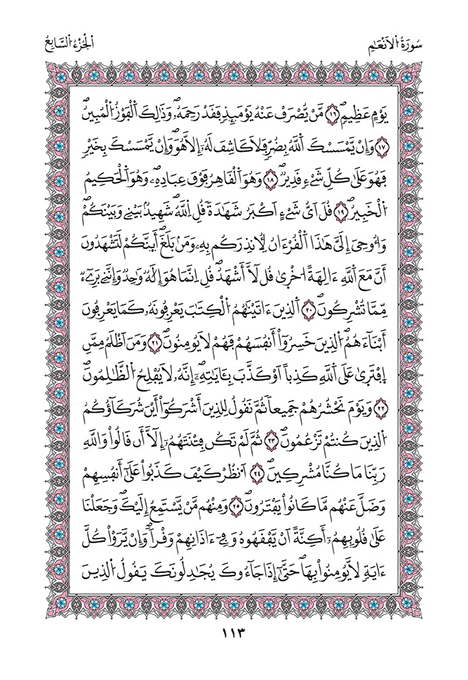 سُورَةُ الْأَنْعَامِ
الْجُزْءُ السَّابِعُ
يَوْمٍ عَظِيمٍ ١٦ مَّنْ يُّصْرَفْ عَنْهُ يَوْمَئِذٍ فَقَدْ رَحِمَهُۥ وَذَٰلِكَ اَلْفَوْزُ الْمُبِينُ
١٧ وَإِنْ يَّمْسَسْكَ اَللَّهُ بِضُرٍّ فَلَا كَاشِفَ لَهُۥ إِلَّا هُوَ وَإِنْ يَّمْسَسْكَ بِخَيْرٍ
فَهُوَ عَلَىٰ كُلِّ شَےْءٍ قَدِيرٌ ١٨ وَهُوَ اَلْقَاهِرُ فَوْقَ عِبَادِهِۦ وَهُوَ اَلْحَكِيمُ
اُلْخَبِيرُ ١٩ قُلْ أَيُّ شَےْءٍ أَكْبَرُ شَهَٰدَةً قُلِ اِللَّهُ شَهِيدٌۢ بَيْنِے وَبَيْنَكُمْ
وَأُوحِيَ إِلَيَّ هَٰذَا اَلْقُرْءَانُ لِأُنذِرَكُم بِهِۦ وَمَنۢ بَلَغَ أَئِنَّكُمْ لَتَشْهَدُونَ
أَنَّ مَعَ اَللَّهِ ءَالِهَةً اُخْر۪يٰ قُل لَّا أَشْهَدُ قُلِ اِنَّمَا هُوَ إِلَٰهٌ وَٰحِدٌ وَإِنَّنِے بَرِےٓءٌ
مِّمَّا تُشْرِكُونَ ٢٠ اَلَّذِينَ ءَاتَيْنَٰهُمُ اُلْكِتَٰبَ يَعْرِفُونَهُۥ كَمَا يَعْرِفُونَ
أَبْنَآءَهُمُ اُلَّذِينَ خَسِرُوٓاْ أَنفُسَهُمْ فَهُمْ لَا يُومِنُونَ ٢١ وَمَنَ اَظْلَمُ مِمَّنِ
اِفْتَر۪يٰ عَلَى اَللَّهِ كَذِباً اَوْ كَذَّبَ بِـَٔايَٰتِهِۦٓ إِنَّهُۥ لَا يُفْلِحُ اُلظَّٰلِمُونَ
٢٢ وَيَوْمَ نَحْشُرُهُمْ جَمِيعاً ثُمَّ نَقُولُ لِلَّذِينَ أَشْرَكُوٓاْ أَيْنَ شُرَكَآؤُكُمُ
اُلَّذِينَ كُنتُمْ تَزْعُمُونَ ٢٣ ثُمَّ لَمْ تَكُن فِتْنَتَهُمُۥٓ إِلَّآ أَن قَالُواْ وَاللَّهِ
رَبِّنَا مَا كُنَّا مُشْرِكِينَ ٢٤ اَنظُرْ كَيْفَ كَذَبُواْ عَلَىٰٓ أَنفُسِهِمْ
وَضَلَّ عَنْهُم مَّا كَانُواْ يَفْتَرُونَ ٢٥ وَمِنْهُم مَّنْ يَّسْتَمِعُ إِلَيْكَ وَجَعَلْنَا
عَلَىٰ قُلُوبِهِمُۥٓ أَكِنَّةً اَنْ يَّفْقَهُوهُ وَفِےٓ ءَاذَانِهِمْ وَقْراً وَإِنْ يَّرَوْاْ كُلَّ
ءَايَةٍ لَّا يُومِنُواْ بِهَا حَتَّىٰٓ إِذَا جَآءُوكَ يُجَٰدِلُونَكَ يَقُولُ اُلَّذِينَ
١١٣